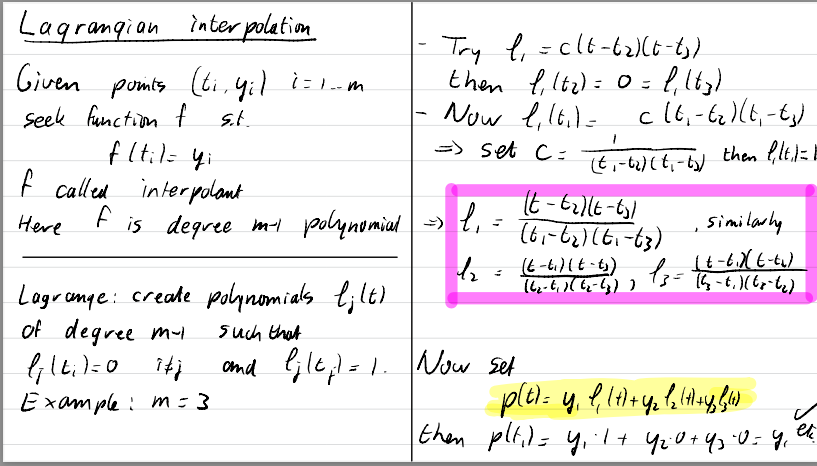 Lagrangian interpolation
Given points (ti, yi) i=1...m
seek function f s.t.
f(ti)= yi
f called interpolant
Here f is degree m-1 polynomial
Lagrange: create polynomials lj(t)
of degree m-1 such that
lj(ti)=0 i≠j and lj(tj)=1.
Example: m=3
- Try l1 = c(t-t2)(t-t3)
then l1(t2)=0=l1(t3)
- Now l1(t1)= c(t1-t2)(t1-t3)
=> set c= 1/((t1-t2)(t1-t3)) then l1(t1)=1
=> l1 = (t-t2)(t-t3)/((t1-t2)(t1-t3)), similarly
l2 = (t-t1)(t-t3)/((t2-t1)(t2-t3)), l3= (t-t1)(t-t2)/((t3-t1)(t3-t2))
Now set
p(t)= y1 l1(t)+y2 l2(t)+y3 l3(t)
then p(t1)= y1·1+ y2·0+y3·0= y1 ✓ etc.